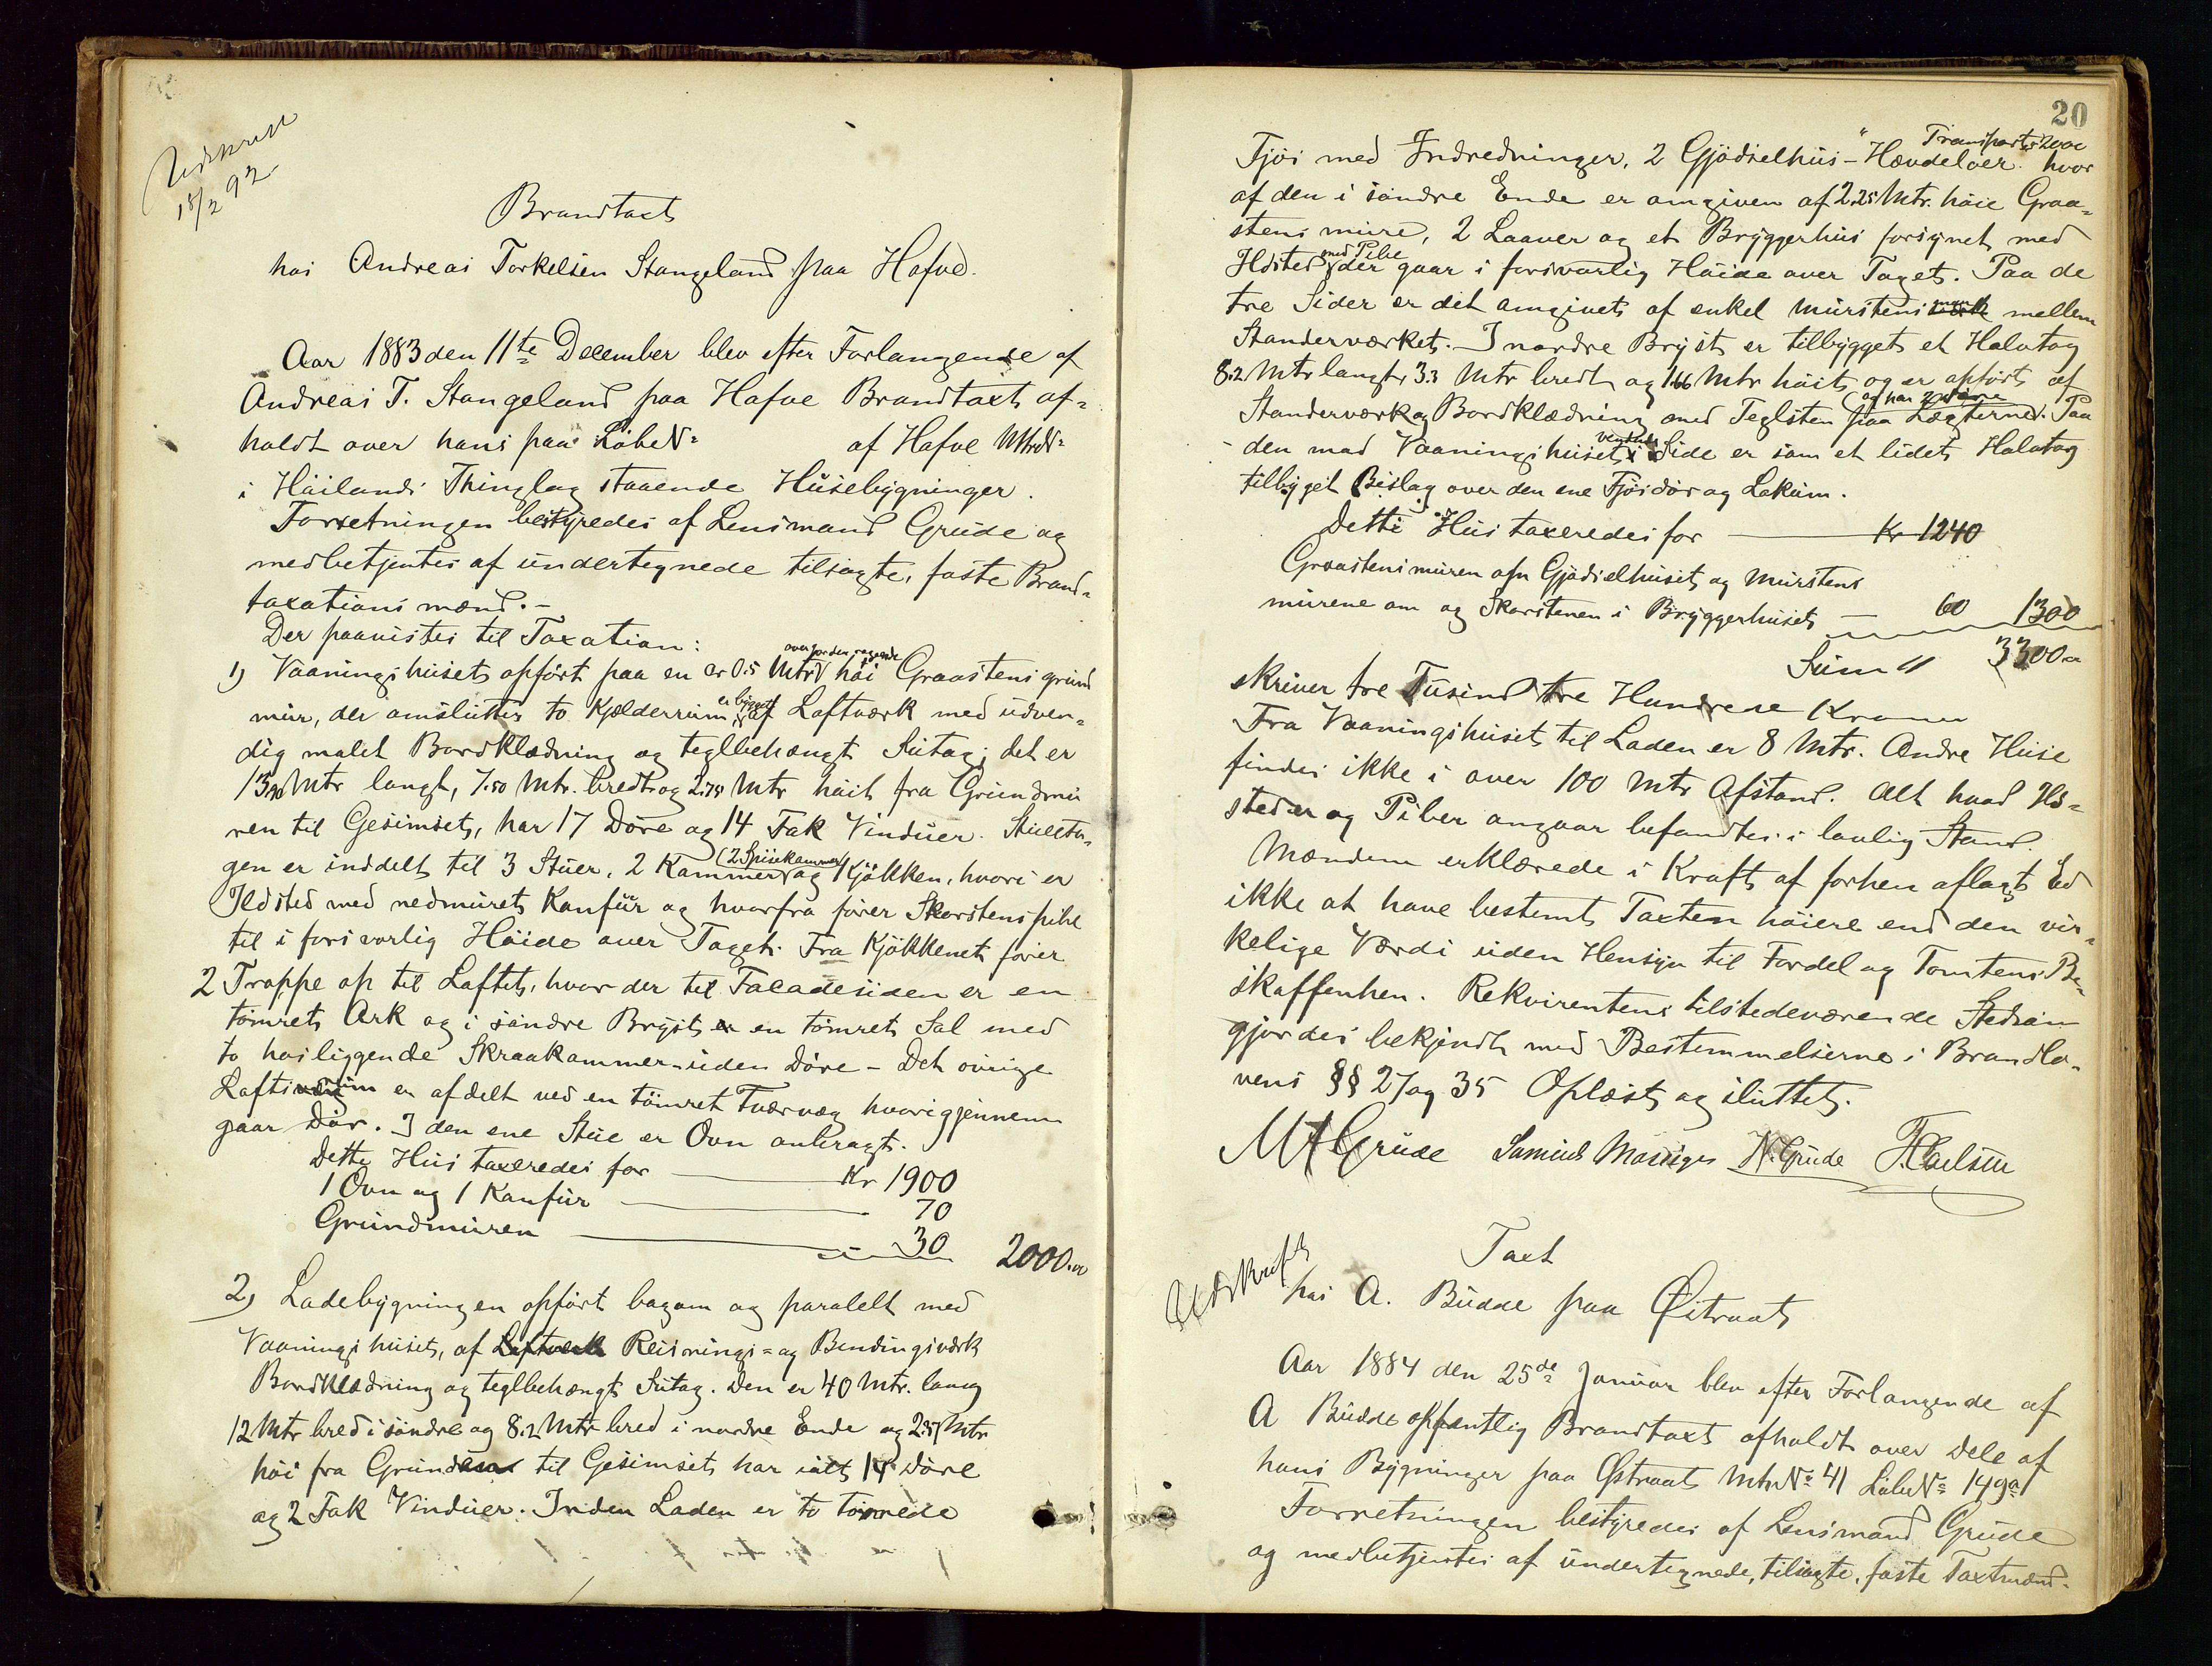 Udskrift
18/2 92
Brandtaxt
hos Andreas Torkelsen Stangeland paa Hafve.
Aar 1883 den 11te December blev efter Forlangende af
Andreas T. Stangeland paa Hafve Brandtaxt af=
holdt over hans paa Løbe No af Hafve Mtr No
i Høilands Thinglag staaende Husebygninger.
Forretningen bestyredes af Lensmand Grude og
medbetjentes af undertegnede tilsagte, faste Brand=
taxations mænd. -
Der paavistes til Taxation:
1) Vaaningshuset opført paa en ca 0.5 Mtr over jorden ragende høi Graastens grund
mur, der omslutter to Kjelderrum, er bygget af Loftværk med udven=
dig malet Bordklædning og teglbehængt Sutag; det er
13,90 Mtr langt, 7.50 Mtr. bredt og 2.75 Mtr høit fra Grundmu
ren til Gesimset, har 17 Døre og 14 Fak Vinduer. Stueeta=
gen er inddelt til 3 Stuer, 2 Kammer (2 Spisekammer) og 1 Kjøkken, hvori er
Ildsted med nedmuret Komfür og hvorfra fører Skorstenspibe
til i forsvarlig Høide over Taget. Fra Kjøkkenet fører
2 Trappe op til Loftet, hvor der til Facadesiden er en
tømret Ark og i søndre Bryst er en tømret Sal med
to hosliggende Skraakammer uden Døre - Det øvrige
Loftsrum er afdelt ved en tømret Tværvæg hvorigjennem
gaar Dør. I den ene Stue er Ovn anbragt.
Dette Hus taxeredes for Kr 1900
1 Ovn og 1 Komfür 70
Grundmuren 30 2000.00
2) Ladebygningen opført bagom og paralelt med
Vaaningshuset, af Loftværk Reisnings= og Bindingsværk
Bordklædning og teglbehængt Sutag. Den er 40 Mtr. lang
12 Mtr bred i søndre og 8.2 Mtr bred i nordre Ende og 2.57 Mtr
høi fra Grunden til Gesimset har ialt 14 Døre
og 2 Fak Vinduer. Inden Laden er to tømrede
20
Transport 2000
Fjøs med Indredninger, 2 Gjødselhus - "Høvdeløer" hvor
af den i søndre Ende er omgiven af 2.25 Mtr. høie Graa=
stens mure, 2 Laaver og et Bryggerhus forsynet med
Ildsted med Pibe der gaar i forsvarlig Høide over Taget. Paa de
tre Sider er det omgivet af enkel Murstensmur mellem
Standerværket. I nordre Bryst er tilbygget et Halvtag
8.2 Mtr langt, 3.3 Mtr bredt og 1.66 Mtr høit og er opført af
Standerværk og Bordklædning med Teglsten paa Lægterne (og har 2 Døre). Paa
den mod Vaaningshuset vendende Side er som et lidet Halvtag
tilbyget Bislag over den ene Fjøsdør og Lokum.
Dette Hus taxeredes for Kr 1240
Graastensmuren om Gjødselhuset og Murstens
murene om og Skorstenen i Bryggerhuset 60 1300
Sum 3300.00
skriver tre Tusind tre Hundrede Kroner
Fra Vaaningshuset til Laden er 8 Mtr. Andre Huse
findes ikke i over 100 Mtr Afstand. Alt hvad Ild=
steder og Piber angaar befandtes i lovlig Stand.
Mændene erklærede i Kraft af forhen aflagt Ed
ikke at have bestemt Taxten høiere end den vir=
kelige Værdi uden Hensyn til Fordel og Tomtens Be=
skaffenhen. Rekvirentens tilstedeværende Stedsøn
gjordes bekjendt med Bestemmelserne i Brandlo=
vens §§ 27 og 35 Oplæst og sluttet.
M A Grude Samuel Mossige N. Grude
Udskrift
Taxt
hos A. Budde paa Østraat
Aar 1884 den 25de Januar blev efter Forlangende af
A Budde offentlig Brandtaxt afholdt over Dele af
hans Bygninger paa Østraat Mtr No 41 Løbe No 149a
Forretningen bestyredes af Lensmand Grude
og medbetjentes af undertegnede, tilsagte, faste Taxtmænd.